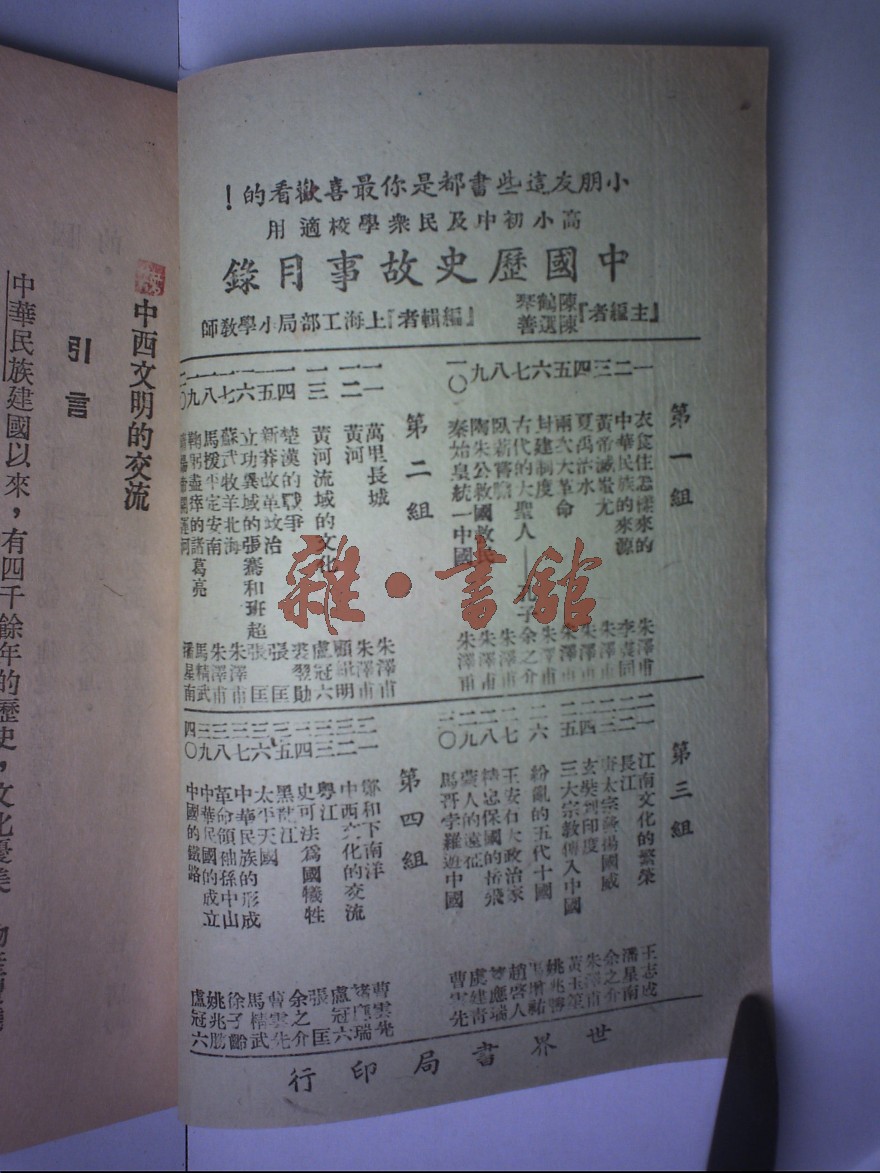 小朋友這些書都是你最喜歡看的!
高小初中及民衆學校適用
中國歷史故事目錄
『主編者』陳鶴琴 陳選善
『編輯者』上海工部局小學教師
第一組
一 衣食住怎樣來的 朱澤甫
二 中華民族的來源
三 黃帝滅蚩尤 朱澤甫
四 夏禹治水 朱澤甫
五 兩次大革命 朱澤甫
六 封建制度 朱澤甫
七 古代的大聖人——孔子 余之介
八 臥薪嘗膽 朱澤甫
九 陶朱公救國救民 朱澤甫
一〇 秦始皇統一中國 朱澤甫
第二組
一一 萬里長城 朱澤甫
一二 黃河
一三 黃河流域的文化 盧冠六
一四 楚漢的戰爭 裘翌勛
一五 新莽改革政治 張匡
一六 立功異域的張騫和班超 張匡
一七 蘇武牧羊北海 朱澤甫
一八 馬援平定安南 朱澤甫
一九 鞠躬盡瘁的諸葛亮 馬精武
二〇 潘星南
第三組
二一 江南文化的繁榮 王志成
二二 長江 潘星南
二三 唐太宗發揚國威 余之介
二四 玄奘到印度 朱澤甫
二五 三大宗教傳入中國
二六 紛亂的五代十國
二七 王安石大政治家 趙啓人
二八 精忠保國的岳飛
二九 蒙人的遠征 虞建青
三〇 馬哥孛羅遊中國 曹雲先
第四組
三一 鄭和下南洋 曹雲先
三二 中西文化的交流
三三 粵江 盧冠六
三四 史可法爲國犧牲 張匡
三五 黑龍江 余之介
三六 太平天國 曹雲先
三七 中華民族的形成 馬精武
三八 革命領袖孫中山 徐子
三九 中華民國的成立 姚兆
四〇 中國的鐵路 盧冠六
世界書局印行
雜·書館
中西文明的交流
引言
中華民族建國以來,有四千餘年的歷史,文化優美